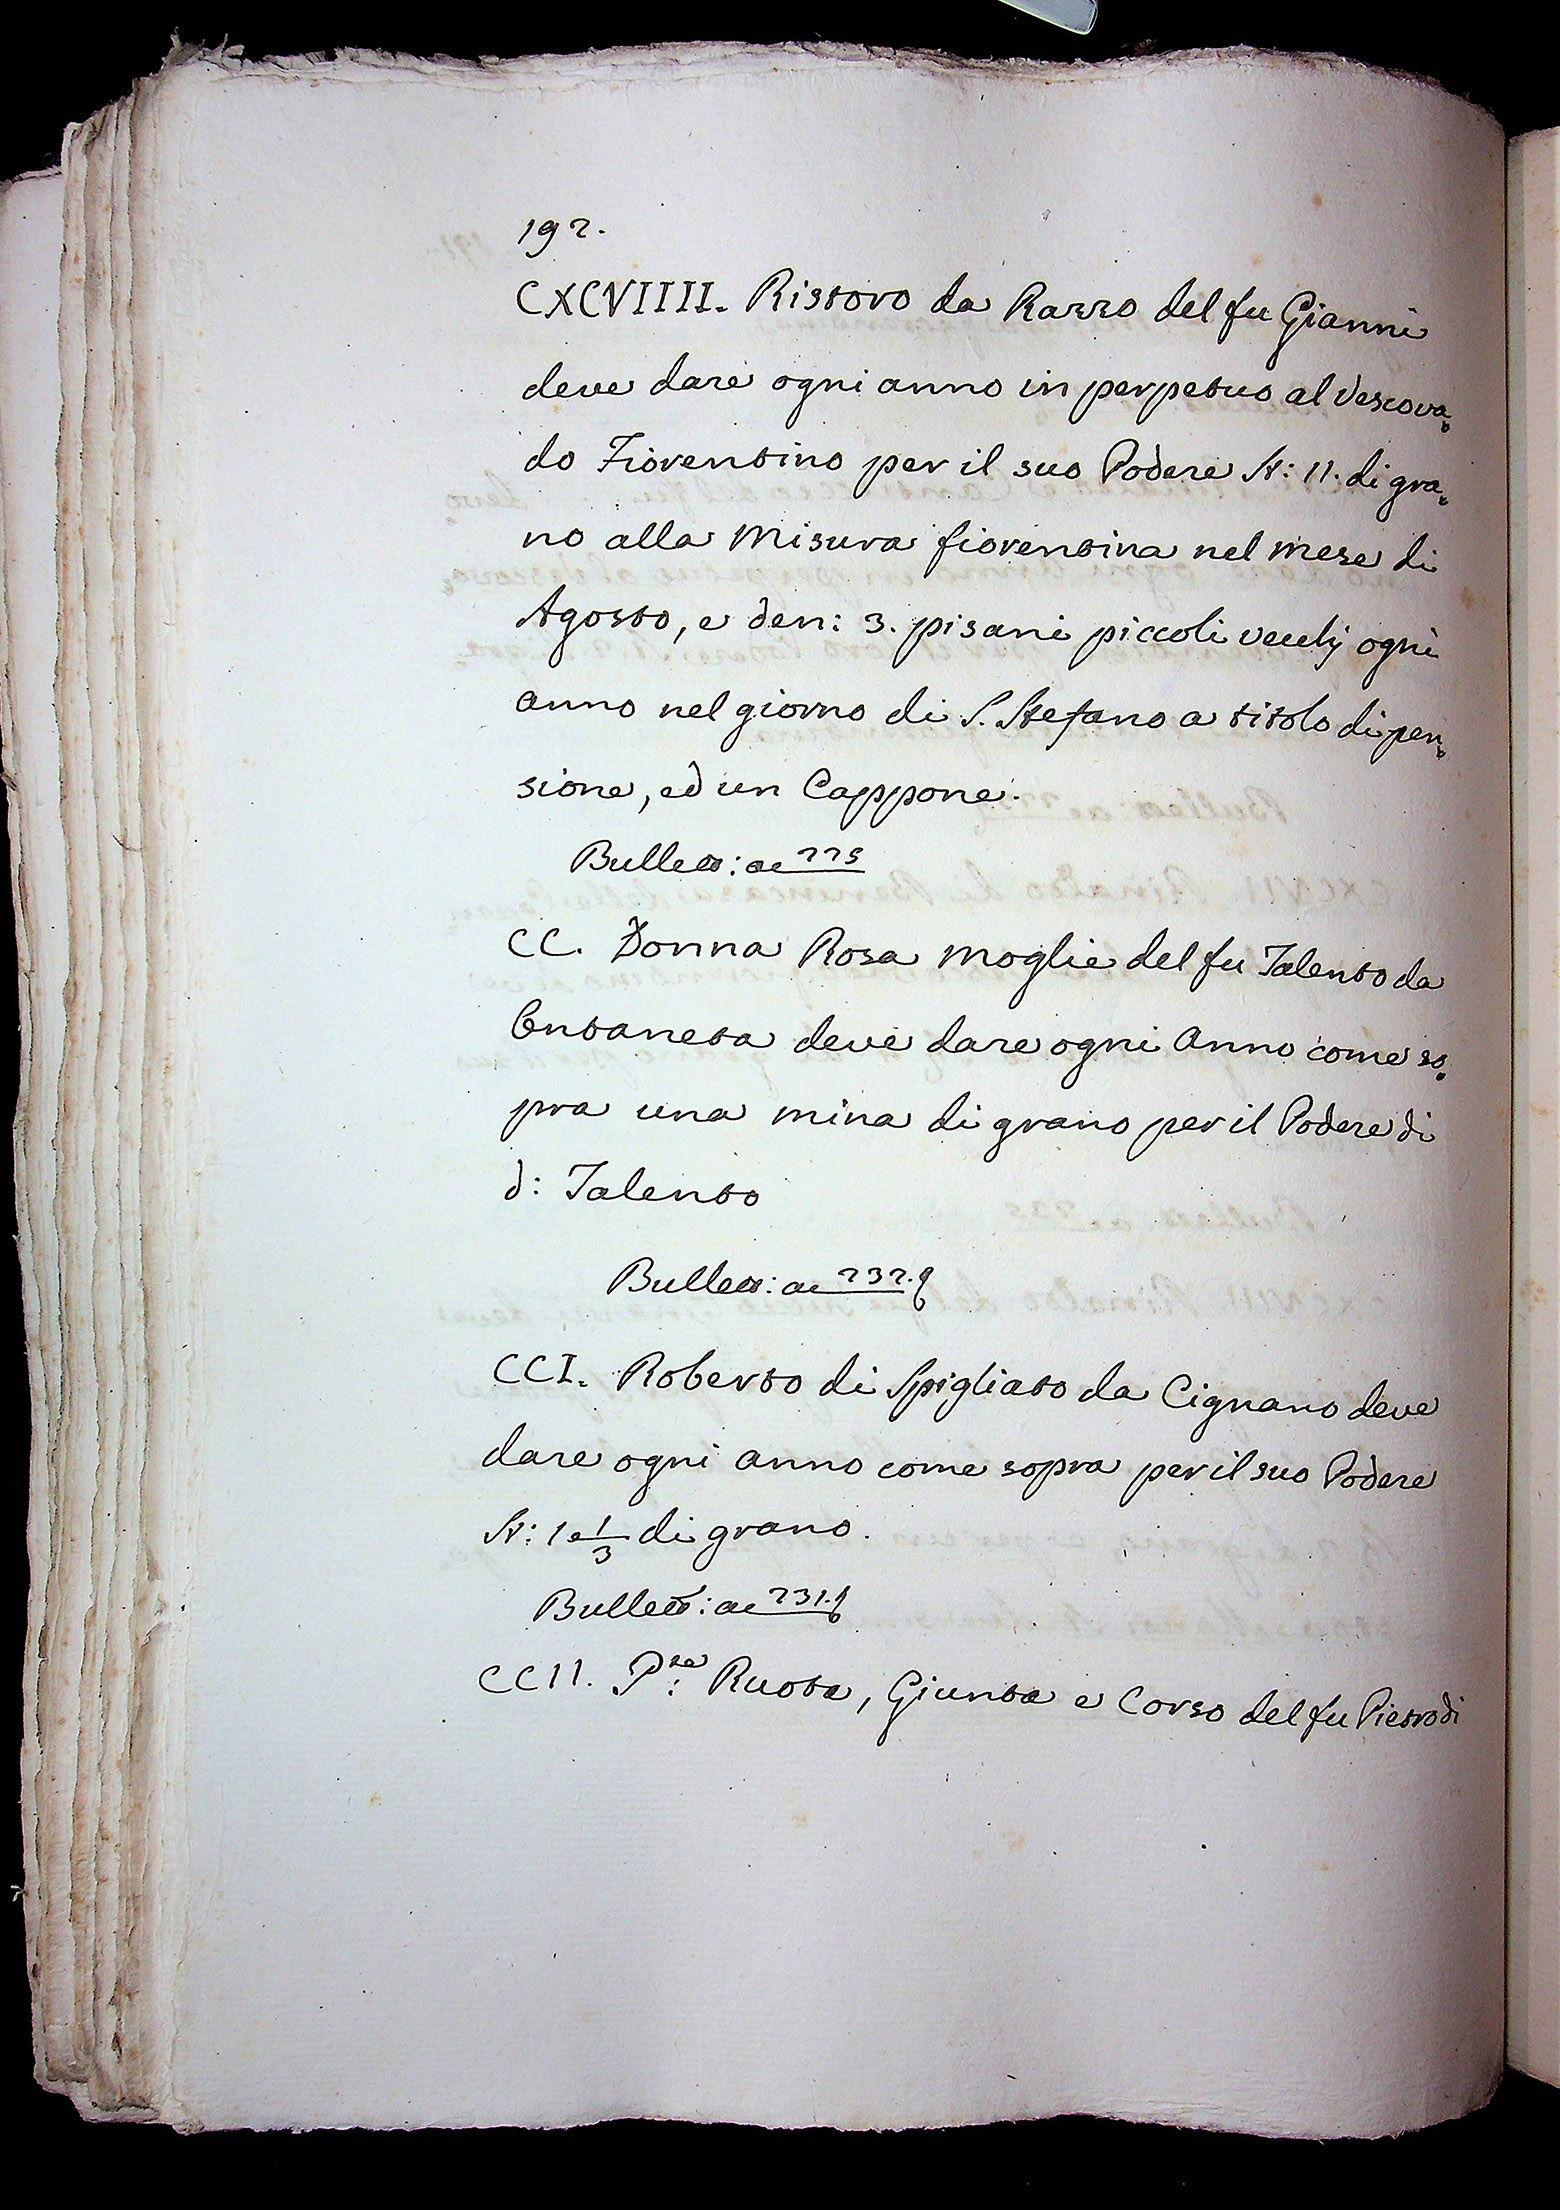 192.
CXCVIIII. Ristoro da Razzo del fu Gianni
deve dare ogni anno in perpetuo al Vescova=
do Fiorentino per il suo Podere St: 11. di gra=
no alla Misura fiorentina nel mese di
Agosto, e den: 3. pisani piccoli vecchj ogni
anno nel giorno di S. Stefano a titolo di pen=
sione, ed un Cappone.
Bullett: ac 225
CC. Donna Rosa moglie del fu Talento da
deve dare ogni Anno come so=
pra una mina di grano per il Podere di
d: Talento
Bullett: ac 232.
CCI. Roberto di Spigliato da Cignano deve
dare ogni anno come sopra per il suo Podere
St: 1 e 1/3 di grano.
Bullett: ac 231.
CCII. Ruota, Giunta e Corso del fu Pietro di